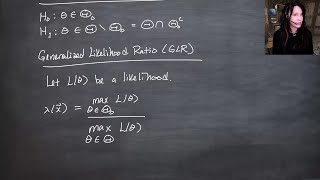 H₀: θ ∈ Θ₀
H₁: θ ∈ Θ \ Θ₀ = Θ ∩ Θ₀ᶜ
Generalized Likelihood Ratio (GLR)
Let L(θ) be a likelihood.
λ(x⃗) = max L(θ)
θ ∈ Θ₀
max L(θ)
θ ∈ Θ